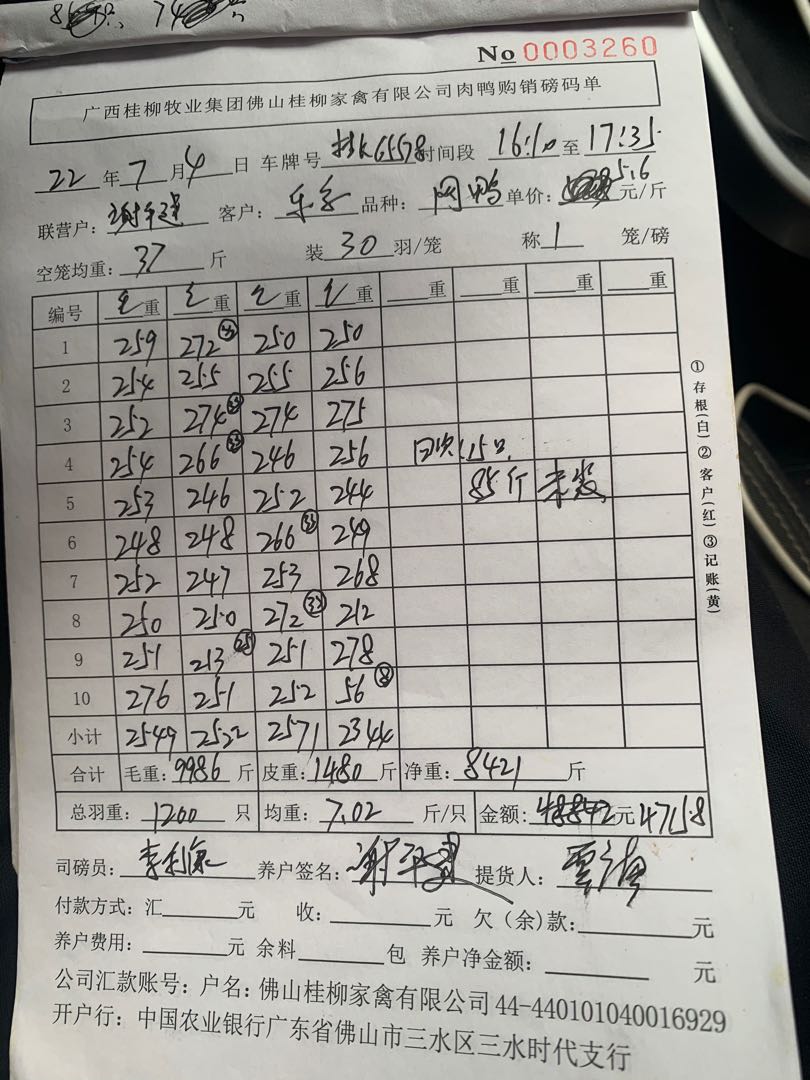 No 0003260
广西桂柳牧业集团佛山桂柳家禽有限公司肉鸭购销磅码单
22年7月4日 车牌号 K65578 时间段 16:10至17:35
联营户: 客户: 乐家 品种: 网鸭 单价: 5.6 元/斤
空笼均重: 37 斤 装 30 羽/笼 称 1 笼/磅
编号 毛重 毛重 毛重 毛重 重 重 重 重
1 259 272 250 250
2 254 255 255 256
3 252 274 274 275
4 254 266 246 256 15只
5 253 246 252 244 85斤 未发
6 248 248 266 249
7 252 247 253 268
8 250 250 272 212
9 251 213 251 278
10 276 251 252 56 ⑧
小计 2549 2522 2571 2344
合计 毛重: 9986 斤 皮重: 1480 斤 净重: 8421 斤
总羽重: 1200 只 均重: 7.02 斤/只 金额: 元 47158
司磅员: 李利康 养户签名: 提货人:
付款方式: 汇 元 收: 元 欠(余)款: 元
养户费用: 元 余料 包 养户净金额: 元
公司汇款账号: 户名: 佛山桂柳家禽有限公司 44-440101040016929
开户行: 中国农业银行广东省佛山市三水区三水时代支行
①存根(白)②客户(红)③记账(黄)